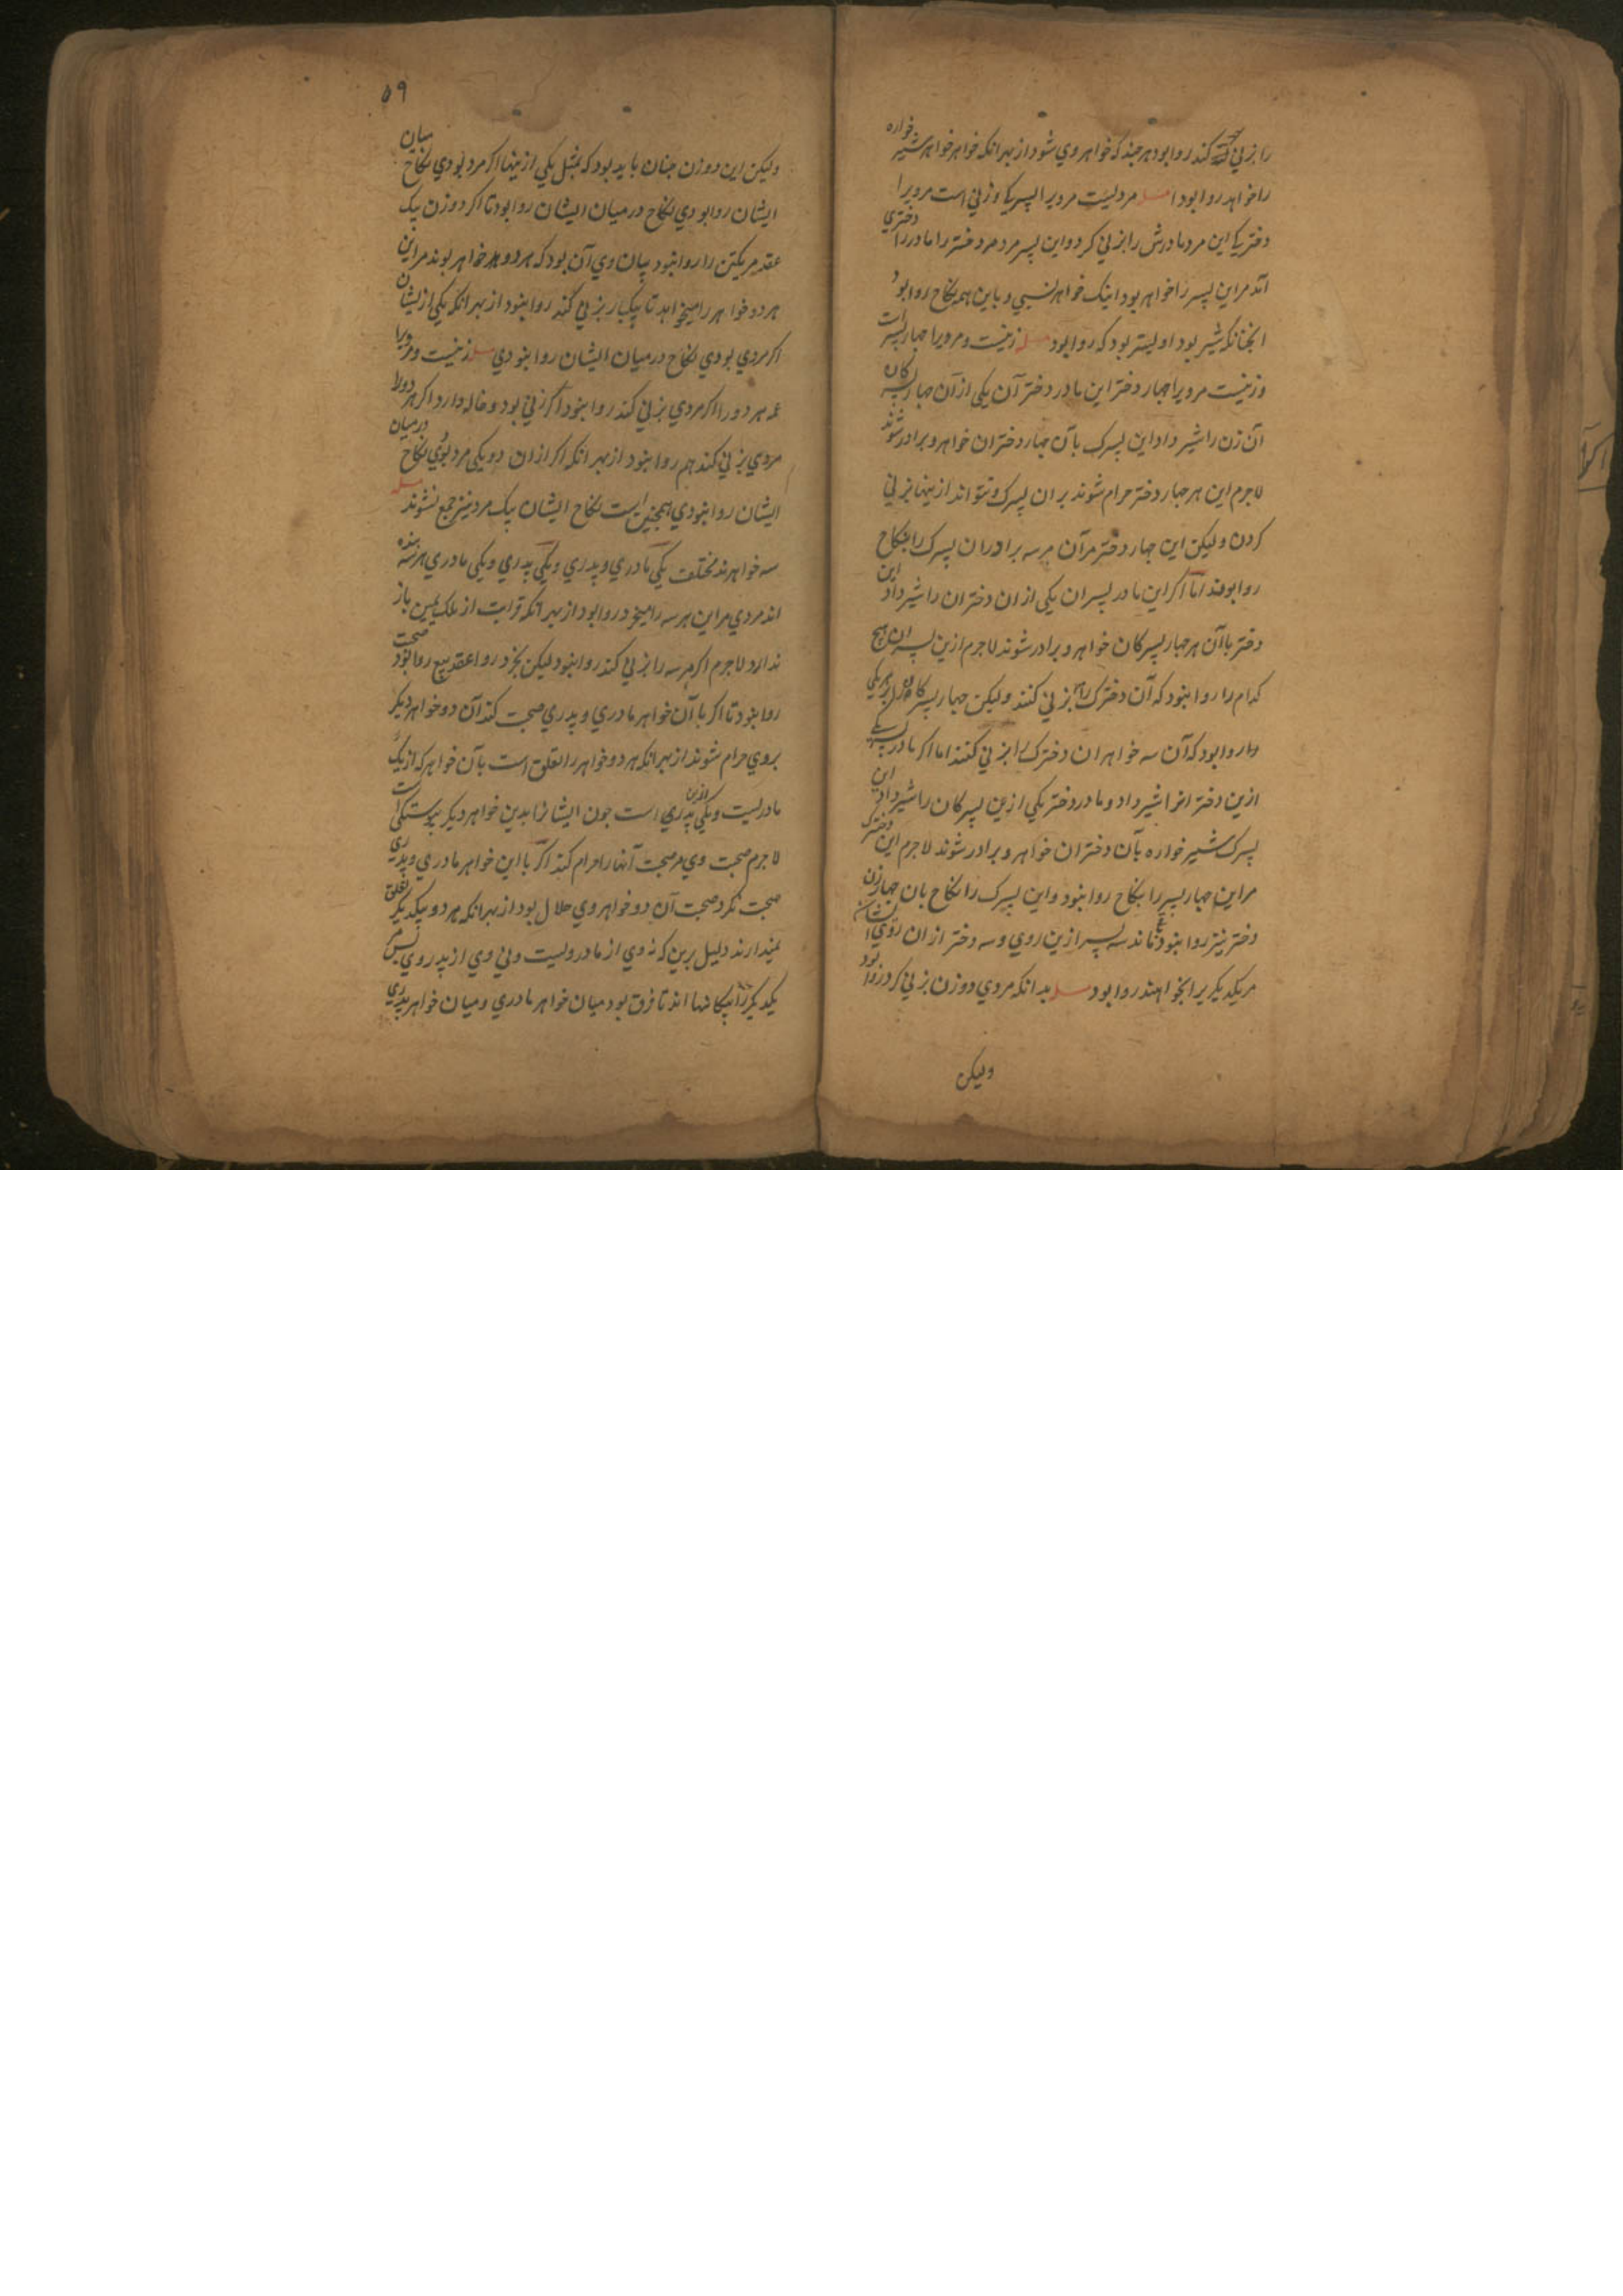 را بزنی کند روا بود هر چند که خواهر وی شود از بهر آنکه خواهر خواهر شیر خواره
را خواهد روا بود مسله مردیست مرویرا پسریکا و زنی است مرویرا
دختریکا این مرد مادرش را بزنی کرد و این پسر مرد مر دختر را مادر را دختری
آمد مراین پسر را خواهر بود اینک خواهر نسبی و باین همه نکاح روا بود
آنجنانکه شیر بود اولیتر بود که روا بود مسله زنیست و مرویرا جهار پسر است
و زنیست مرویرا جهار دختر این مادر دختر آن یکی از آن جهار پسرکان
آن زن را شیر داد این پسرک بآن جهار دختران خواهر و برادر شوند
لاجرم این هر جهار دختر حرام شوند بران پسرک و نتواند ازینها بزنی
کردن و لیکن این جهار دختر مرآن هر سه برادران پسرک را بنکاح
روا بوند اما اکر این مادر پسران یکی از ان دختران را شیر داد این
دختر باآن هر جهار پسرکان خواهر و برادر شوند لاجرم ازین پسران هیچ
کدام را روا نبود که آن دخترک را بزنی کنند و لیکن جهار پسرکان هر یکی
را روا بود که آن سه خواهران دخترک را بزنی کنند اما اکر مادر پسرک یکی
ازین دخترانرا شیر داد و مادر دختر یکی ازین پسرکان را شیر داد این
پسرک شیرخواره بآن دختران خواهر و برادر شوند لاجرم این دخترک
مراین جهار پسر را بنکاح روا نبود و این پسرک را نکاح بان جهار زن
دختر نیز روا نبود بماند سه پسر ازین روی و سه دختر از ان روی ایشان
مریکدیکریرا بخواهند روا بود مسله بدانکه مردی دو زن بزنی کرد روا بود
ولیکن
۵۹
ولیکن این دو زن جنان باید بود که بمثل یکی ازینها اکر مرد بودی نکاح میان
ایشان روا بودی نکاح در میان ایشان روا بود تا اکر دو زن بیک
عقد مریکتن را روا نبود بیان وی آن بود که هر دو خواهر بوند مراین
هر دو خواهر را میخواهد تا بیکبار بزنی کند روا نبود از بهر آنکه یکی ازیشان
اکر مردی بودی نکاح درمیان ایشان روا نبودی مسله زنیست و مرویرا
عمه هر دو را اکر مردی بزنی کند روا نبود اکر زنی بود و خاله دارد اکر هر دو را
مردی بزنی کند هم روا نبود از بهر آنکه اکر ازان دو یکی مرد بودی نکاح درمیان
ایشان روا نبودی همجنین است نکاح ایشان بیک مرد نیز جمع نشوند مسله
سه خواهرند مختلف یکی مادری و پدری و یکی پدری و یکی مادری هر سه بنده
اند مردی مراین هر سه را میخرد روا بود از بهر آنکه قرابت از ملک یمین باز
ندارد لاجرم اکر هر سه را بزنی کند روا نبود لیکن بخرد روا عقد بیع روا بود صحبت
روا نبود تا اکر با آن خواهر مادری و پدری صحبت کند آن دو خواهر دیکر
بروی حرام شوند از بهر آنکه هر دو خواهر را تعلق است بآن خواهر که از یک
مادریست و یکی ازین پدری است جون ایشانرا بدین خواهر دیکر پیوستکی است
لاجرم صحبت وی مر صحبت آنها را حرام کند اکر با این خواهر مادری و پدری
صحبت نکرد صحبت آن دو خواهر وی حلال بود از بهر آنکه هر دو بیکدیکر تعلق
نمیدارند دلیل برین که نه وی از مادر ویست و نی وی از پدر وی پس مر
یکدیکر را بیکانها اند تا فرق بود میان خواهر مادری و میان خواهر پدری